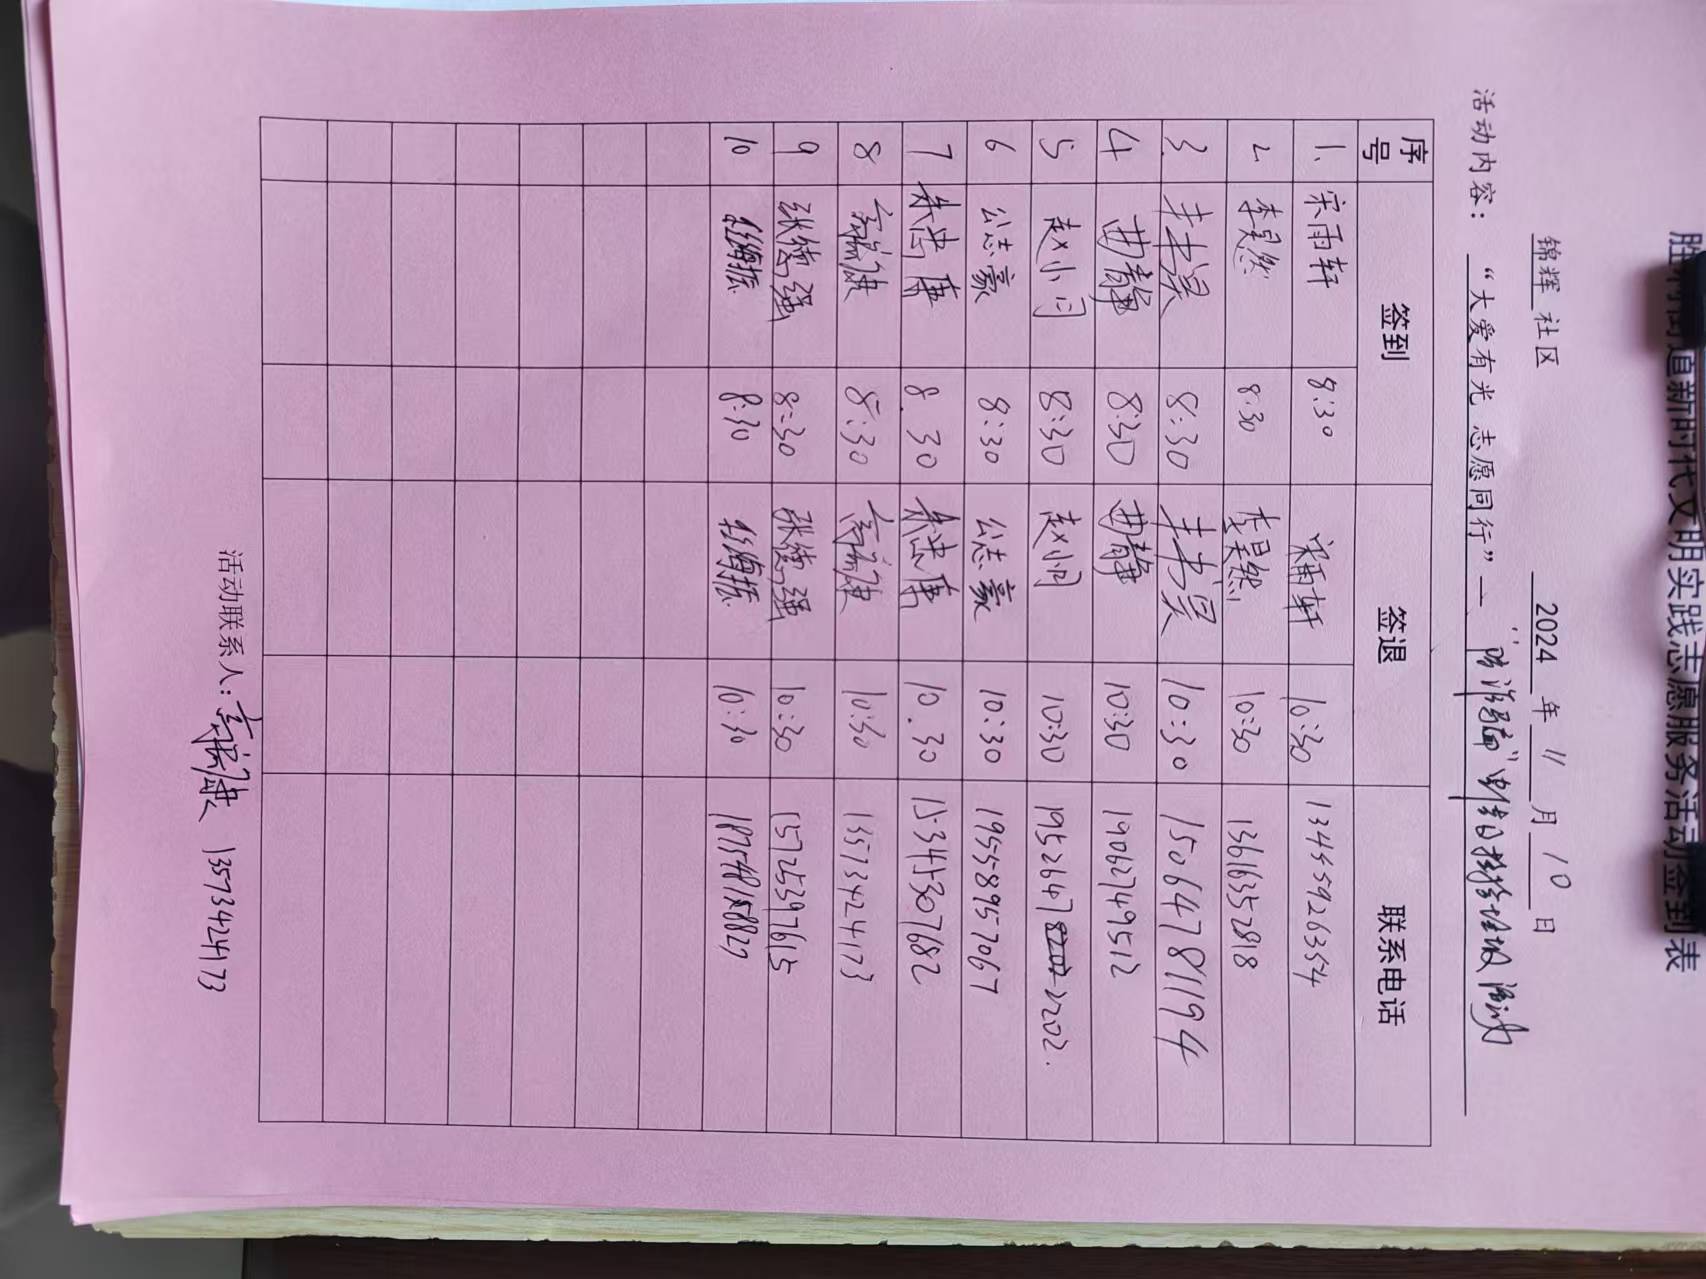 胜利街道新时代文明实践志愿服务活动签到表
锦辉 社区 2024 年 11 月 10 日
活动内容："大爱有光 志愿同行"— "防诈骗"宣传日
序号 签到 签退 联系电话
1. 宋雨轩 8:30 宋雨轩 10:30 13455926354
2 李昊然 8:30 李昊然 10:30 13616352818
3. 8:30 10:30 15064781194
4 曲静 8:30 曲静 10:30 19062749512
5 赵小闩 8:30 赵小闩 10:30 19526478 2202.
6 公志豪 8:30 公志豪 10:30 19558957067
7 朱忠康 8.30 朱忠康 10.30 15345307682
8 高福健 8:30 高福健 10:30 13573424173
9 张德强 8:30 张德强 10:30 15725397615
10 杜海振 8:30 杜海振 10:30
活动联系人：高福健 13573424173